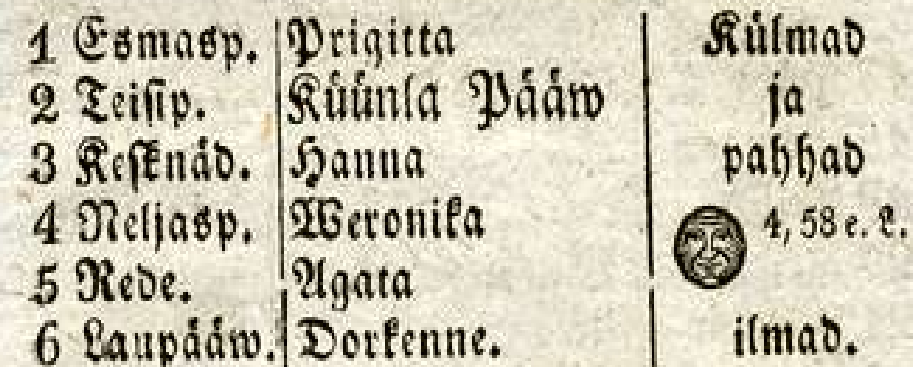 1 Esmasp. Prigitta Külmad
2 Teisip. Küünla Pääw ja
3 Kesknäd. Hanna pahhad
4 Neljasp. Weronika 4, 58 e. L.
5 Rede. Agata
6 Laupääw. Dorkenne. ilmad.